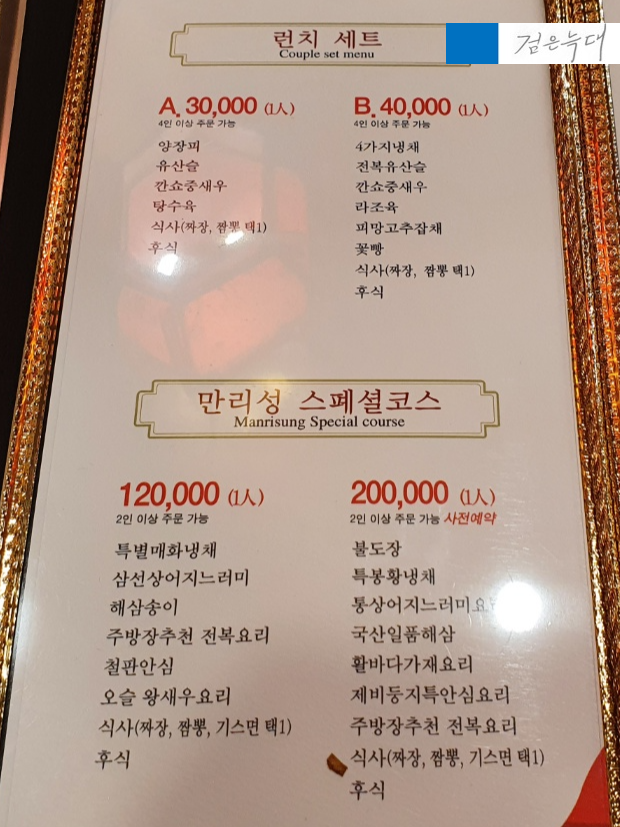 검은늑대
런치 세트
Couple set menu
A. 30,000 (1人)
4인 이상 주문 가능
양장피
유산슬
깐쇼중새우
탕수육
식사(짜장, 짬뽕 택1)
후식
B. 40,000 (1人)
4인 이상 주문 가능
4가지냉채
전복유산슬
깐쇼중새우
라조육
피망고추잡채
꽃빵
식사(짜장, 짬뽕 택1)
후식
만리성 스페셜코스
Manrisung Special course
120,000 (1人)
2인 이상 주문 가능
특별매화냉채
삼선상어지느러미
해삼송이
주방장추천 전복요리
철판안심
오슬 왕새우요리
식사(짜장, 짬뽕, 기스면 택1)
후식
200,000 (1人)
2인 이상 주문 가능 사전예약
불도장
특봉황냉채
통상어지느러미요
국산일품해삼
활바다가재요리
제비둥지특안심요리
주방장추천 전복요리
식사(짜장, 짬뽕, 기스면 택1)
후식